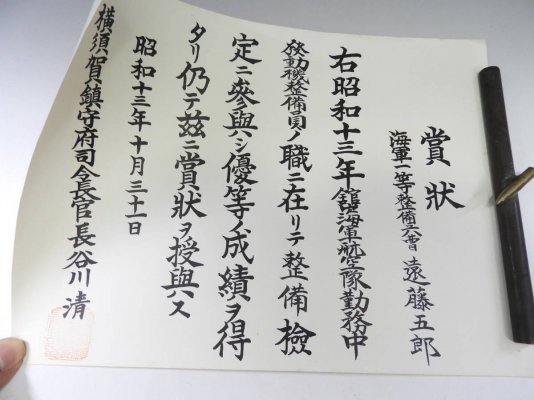 賞狀
海軍一等整備兵曹 遠藤五郎
右昭和十三年舘海軍航空隊勤務中
發動機整備員ノ職ニ在リテ整備檢
定ニ參與シ優等ノ成績ヲ得
タリ仍テ茲ニ賞狀ヲ授與ス
昭和十三年十月三十一日
横須賀鎮守府司令長官長谷川清